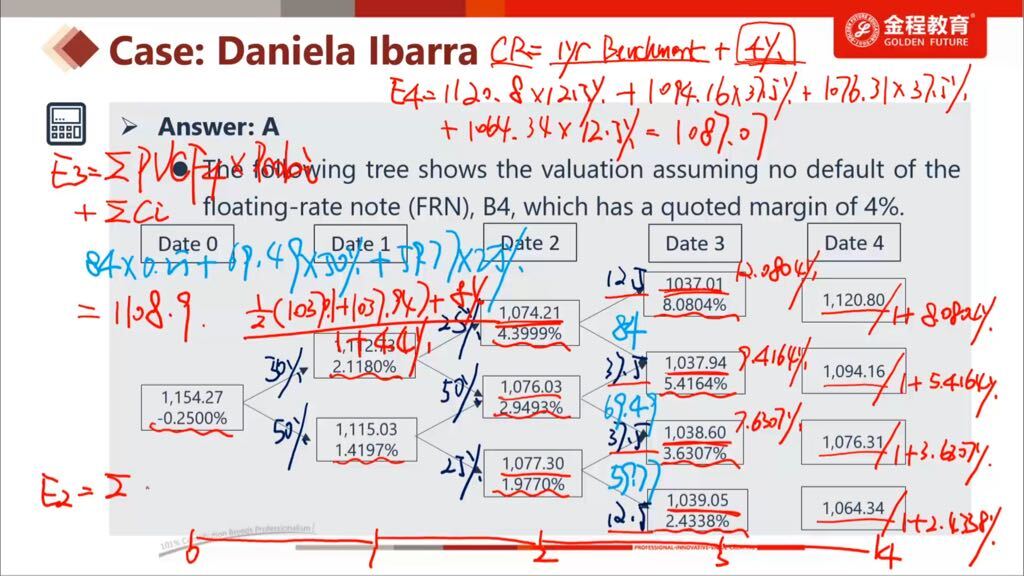 金程教育
GOLDEN FUTURE
Case: Daniela Ibarra
CR= 1yr Benchmark + 4%
E4=1120.8×12.5% +1094.16×37.5%+1076.31×37.5%
+1064.34×12.5%=1087.07
Answer: A
The following tree shows the valuation assuming no default of the
floating-rate note (FRN), B4, which has a quoted margin of 4%.
+ ΣCi
Date 0
Date 1
Date 2
Date 3
Date 4
84×0.25+69.49×50%+59.77×25%
= 1108.9
12.5
1037.01
8.0804%
12.0804%
1,120.80
1+8.0804%
1,074.21
4.3999%
25%
84
2.1180%
30%
37.5
1,037.94
5.4164%
9.4164%
1,094.16
1+5.4164%
1,154.27
-0.2500%
1,076.03
2.9493%
50%
69.49
1,115.03
1.4197%
50%
37.5
1,038.60
3.6307%
7.6307%
1,076.31
1+3.6307%
1,077.30
1.9770%
25%
12.5
1,039.05
2.4338%
1,064.34
1+2.4338%
E2=Σ
0
1
2
3
4